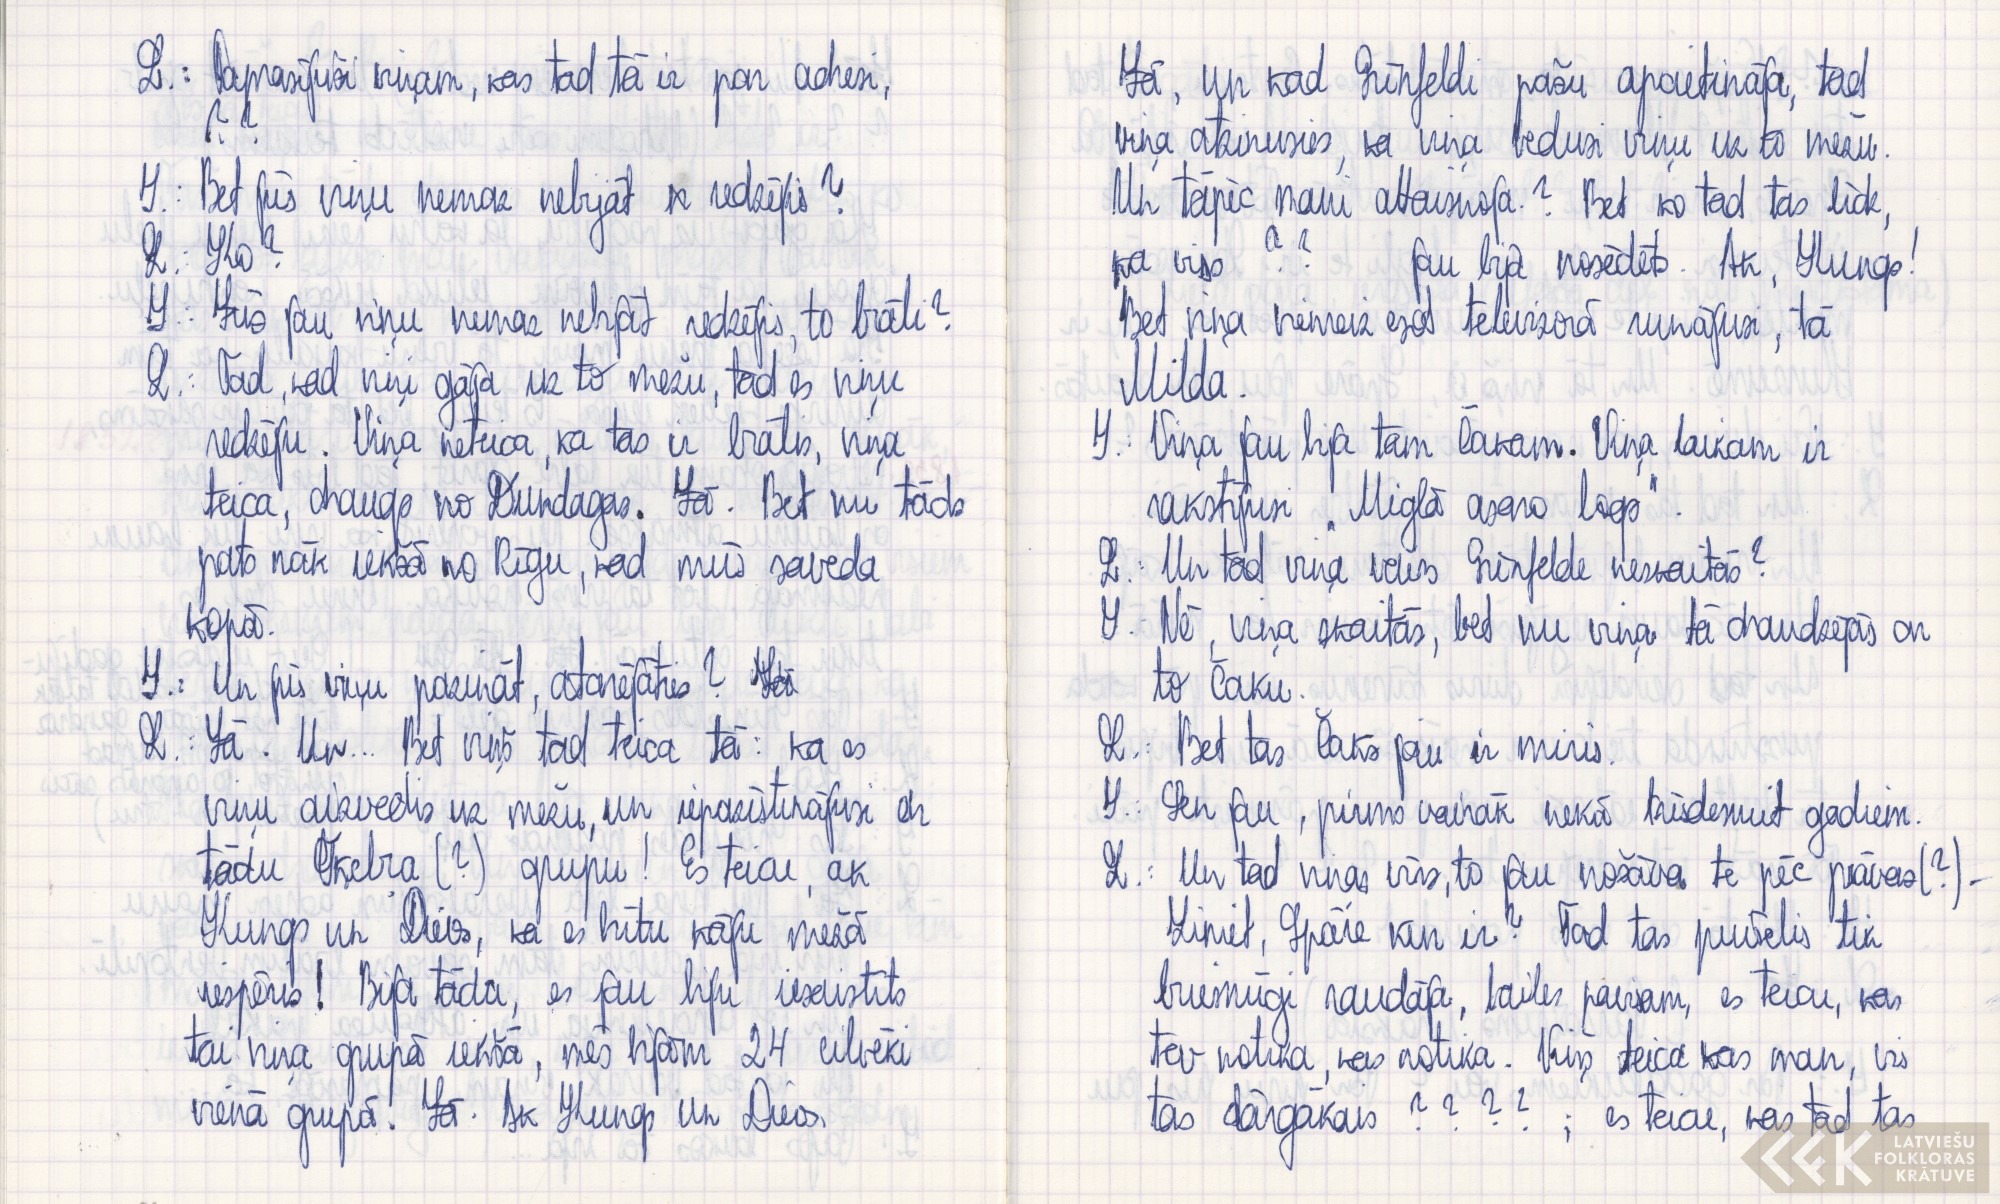 L.: Paprasījusi viņam, kas tad tā ir par adresi,
? ?
I.: Bet jūs viņu nemaz nebijāt redzējis?
L.: Ko?
I.: Jūs jau viņu nemaz nebijāt redzējis, to brāli?
L.: Tad, kad viņi gāja uz to mežu, tad es viņu
redzēju. Viņa neteica, ka tas ir brālis, viņa
teica, draugs no Dundagas. Jā. Bet nu tāds
pats nāk iekšā no Rīgu, kad mūs saveda
kopā.
I.: Un jūs viņu pazināt, atcerējāties?
L.: Jā. Un... Bet viņš tad teica tā: ka es
viņu aizvedis uz mežu, un iepazīstinājusi ar
tādu Ikebra (?) grupu! Es teicu, ak
Kungs un Dievs, ka es būtu kāju mežā
iespēris! Bija tāda, es jau biju iesaistīts
tai viņa grupā iekšā, mēs bijām 24 cilvēki
vienā grupā! Jā. Ak Kungs un Dievs.
Jā, un kad Grīnfeldi pašu apcietināja, tad
viņa atzinusies, ka viņa vedusi viņu uz to mežu.
Un tāpēc mani attaisnoja.? Bet ko tad tas līdz,
ka viss ? ? jau bija nosēdēts. Ak, Kungs!
Bet viņa vienreiz esot televizorā runājusi, tā
Milda.
I.: Viņa jau bija tam Čakam. Viņa laikam ir
rakstījusi "Miglā asaro logs".
L.: Un tad viņa vairs Grīnfelde neskaitās?
I.: Nē, viņa skaitās, bet nu viņa tā draudzējās ar
to Čaku.
L.: Bet tas Čaks jau ir miris.
I.: Sen jau, pirms vairāk nekā trīsdesmit gadiem.
L.: Un tad viņas vīrs, to jau nošāva te pēc prāvas (?) -
Ziniet, Spāre kur ir? Tad tas puišelis tik
briesmīgi raudāja, bailes pavisam, es teicu, kas
tev notika, kas notika. Viņš teica kas man, vis
tas dārgākais ? ? ? ? ; es teicu, kas tad tas
LATVIEŠU
FOLKLORAS
KRĀTUVE